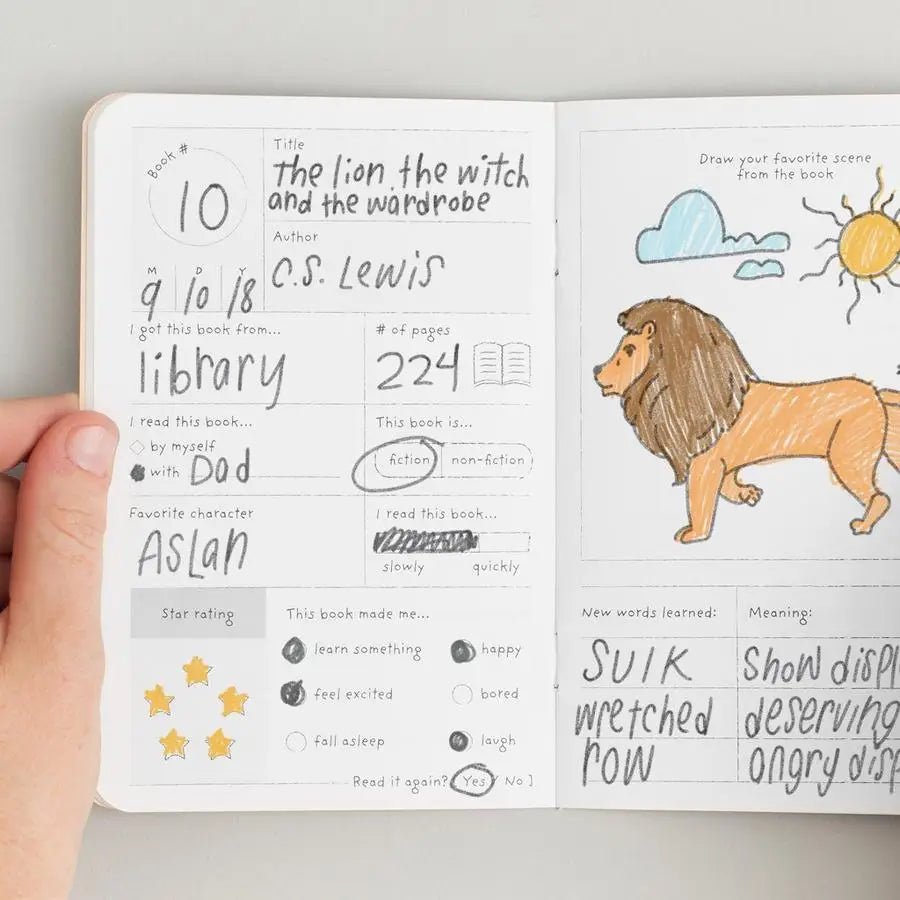 Book #
10
Title
the lion, the witch
and the wardrobe
Author
C.S. Lewis
M D Y
9 10 18
I got this book from...
library
# of pages
224
I read this book...
by myself
with Dad
This book is...
fiction non-fiction
Favorite character
Aslan
I read this book...
slowly quickly
Star rating
This book made me...
learn something happy
feel excited bored
fall asleep laugh
Read it again? Yes / No ]
Draw your favorite scene
from the book
New words learned: Meaning:
Sulk Show displ
wretched deserving
row angry disp